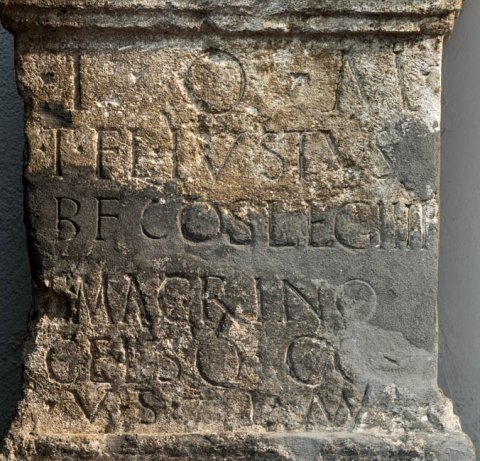 · I · O · M ·
T · FL IVSTVS
BF COS LEG IIII
MACRINO
CELSO CO
V · S · L · M